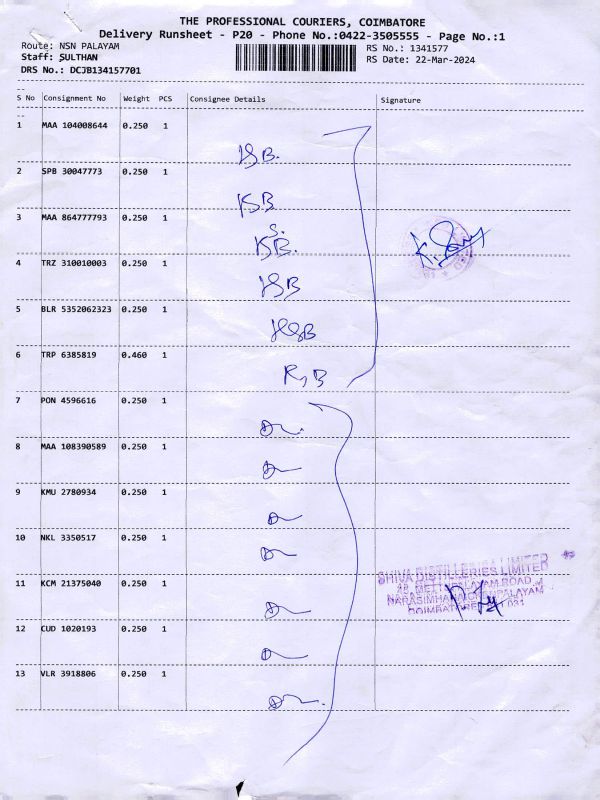 THE PROFESSIONAL COURIERS, COIMBATORE
Delivery Runsheet - P20 - Phone No.:0422-3505555 - Page No.:1
Route: NSN PALAYAM RS No.: 1341577
Staff: SULTHAN RS Date: 22-Mar-2024
DRS No.: DCJB134157701
S No Consignment No Weight PCS Consignee Details Signature
1 MAA 104008644 0.250 1
2 SPB 30047773 0.250 1
KSB
3 MAA 864777793 0.250 1
4 TRZ 310010003 0.250 1
5 BLR 5352062323 0.250 1
6 TRP 6385819 0.460 1
7 PON 4596616 0.250 1
8 MAA 108390589 0.250 1
9 KMU 2780934 0.250 1
10 NKL 3350517 0.250 1
SHIVA DISTILLERIES LIMITED
11 KCM 21375040 0.250 1
METTUPALAYAM ROAD
COIMBATORE 031
12 CUD 1020193 0.250 1
13 VLR 3918806 0.250 1